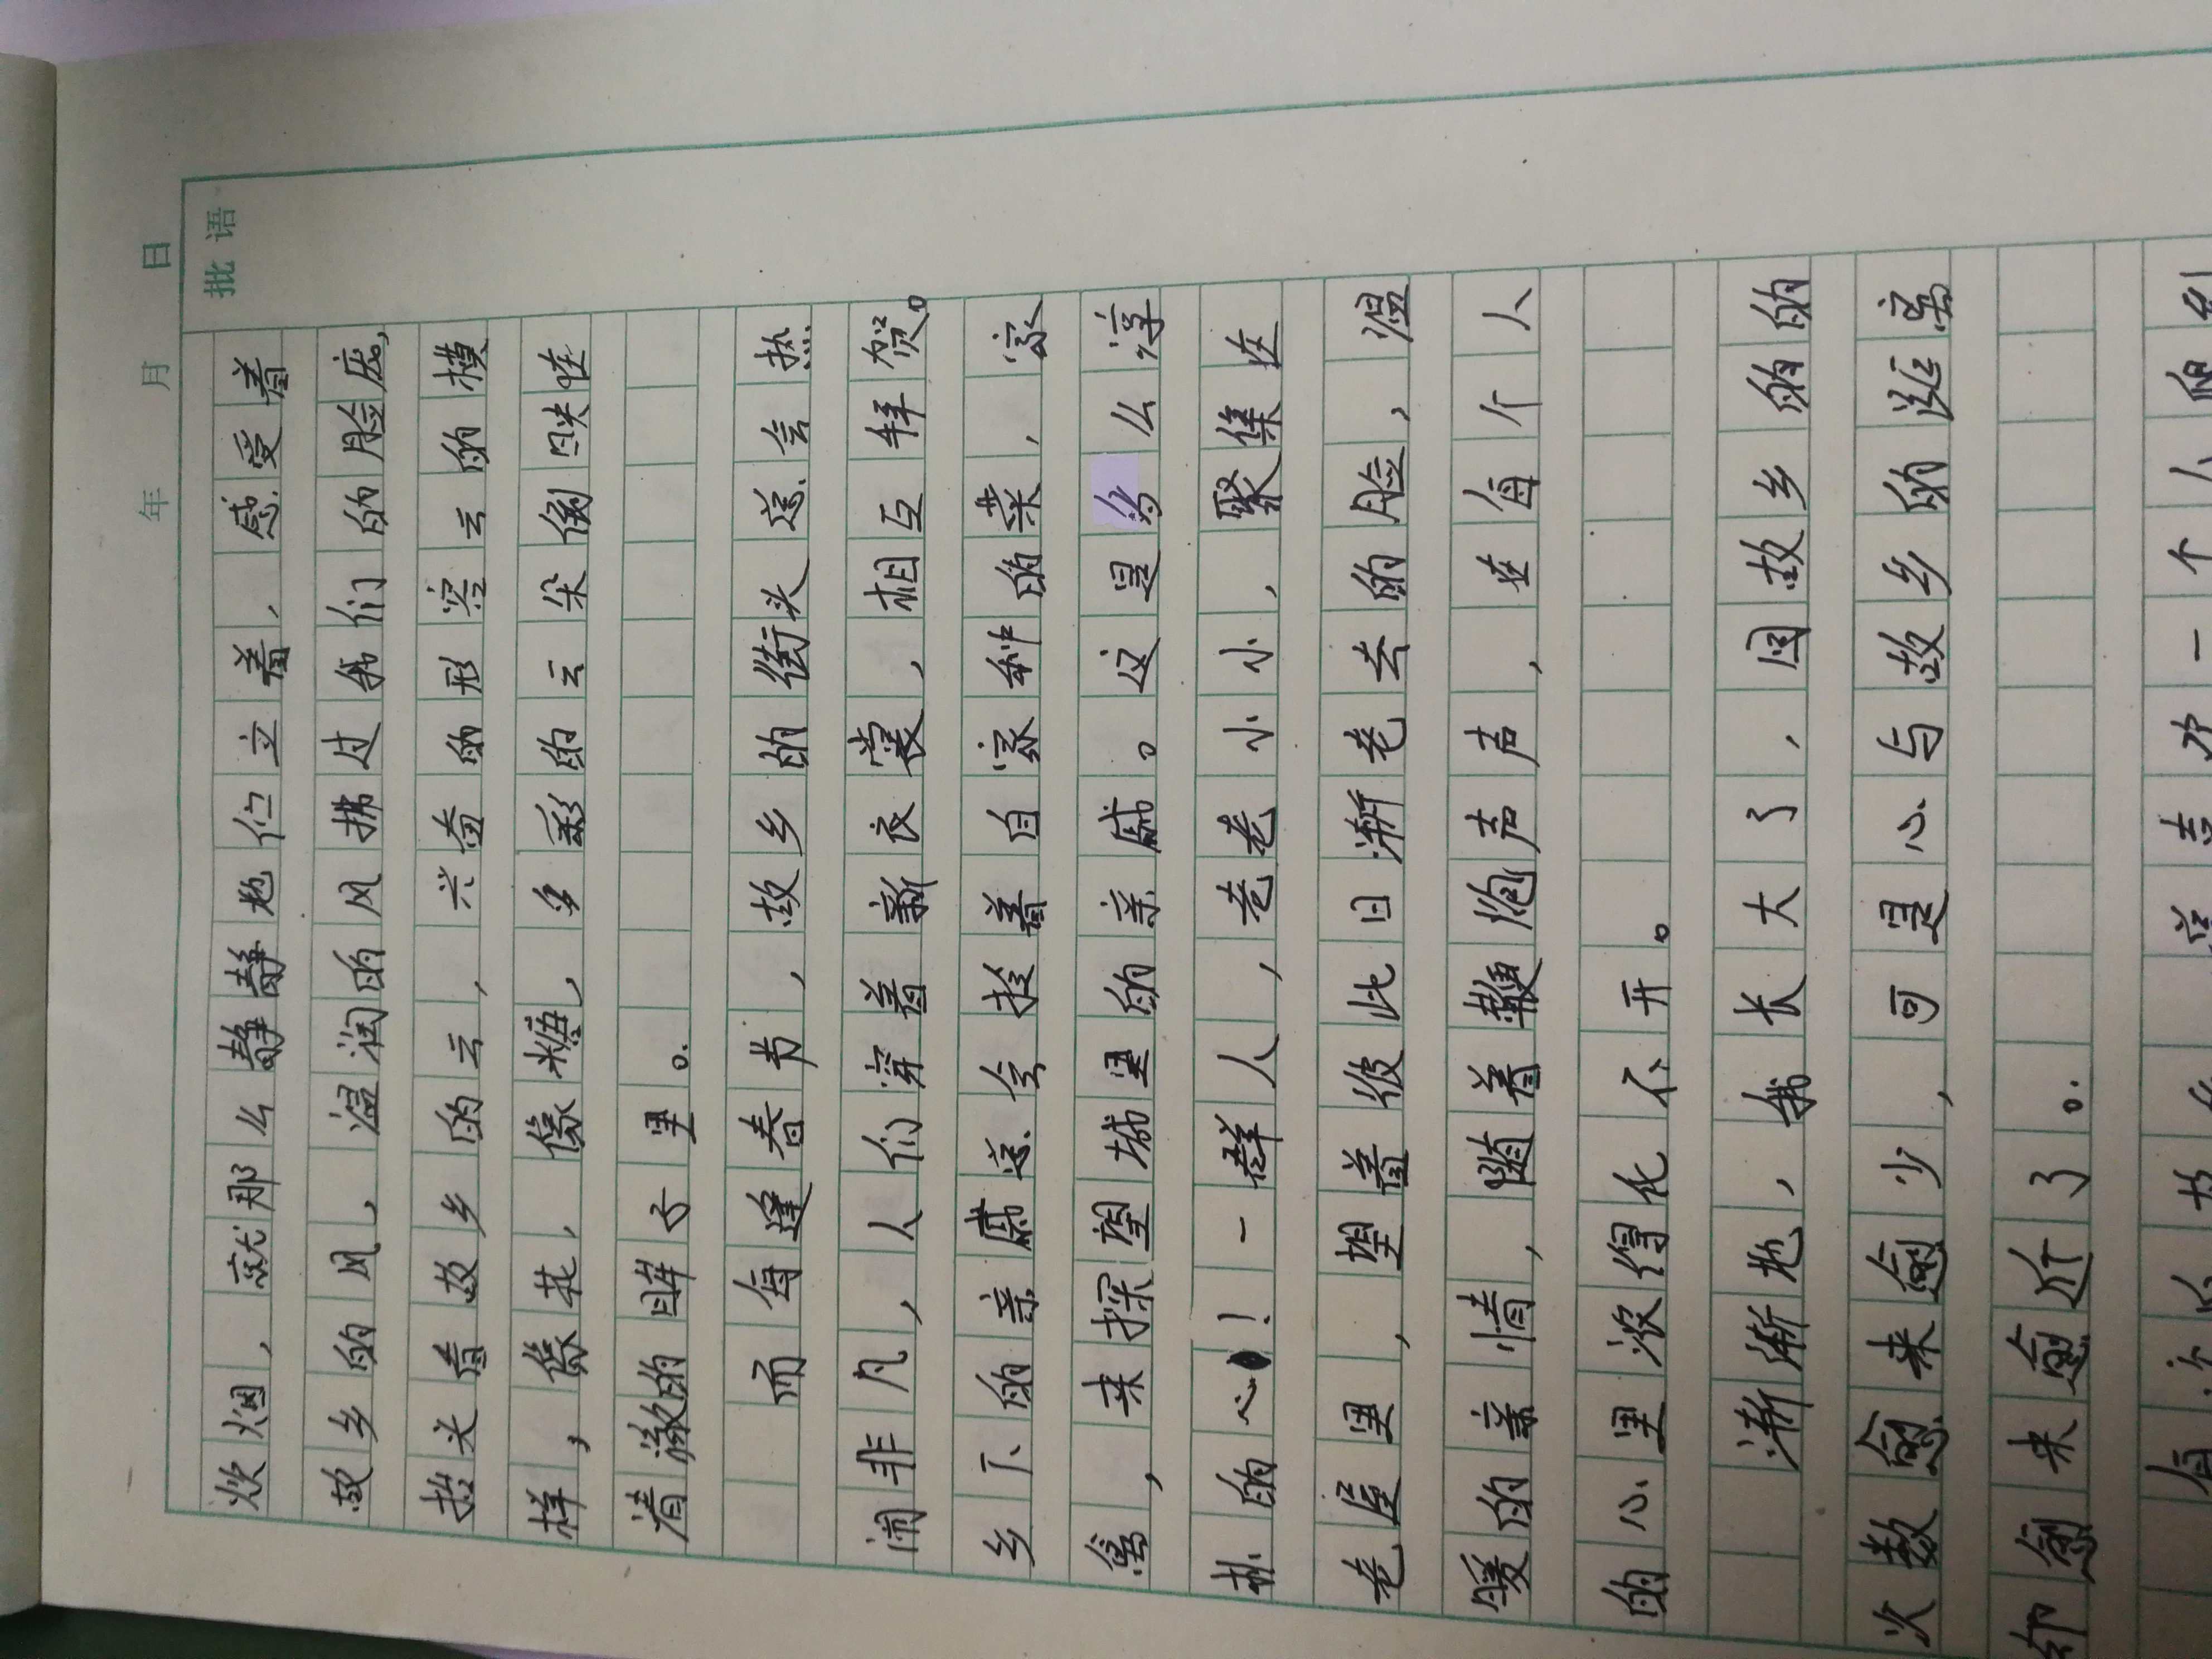 年 月 日
批语
炊烟，就那么静静地伫立着，感受着
故乡的风，温润的风拂过我们的脸庞，
抬头看故乡的云，兴奋的形容云的模
样，像花，像糖，多彩的云朵倒映在
清澈的眸子里。
而每逢春节，故乡的街头总会热
闹非凡，人们穿着新衣裳，相互拜贺。
乡下的亲戚总会拎着自家种的菜，家
禽，来探望城里的亲戚。这是多么淳
朴的心！一群人，老老小小，聚集在
老屋里，望着彼此日渐老去的脸，温
暖的亲情，随着鞭炮声声，在每个人
的心里浓得化不开。
渐渐地，我长大了，回故乡的的
次数愈来愈少，可是心与故乡的距离
却愈来愈近了。